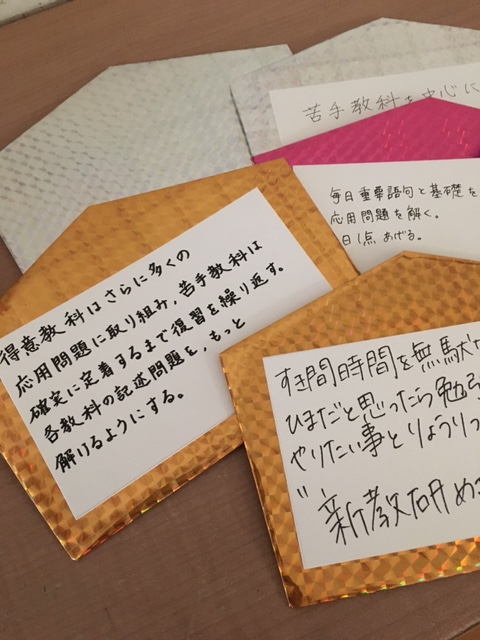 苦手教科を中心に
毎日重要語句と基礎を
応用問題を解く。
日1点あげる。
得意教科はさらに多くの
応用問題に取り組み、苦手教科は
確実に定着するまで復習を繰り返す。
各教科の記述問題を、もっと
解けるようにする。
すき間時間を無駄
ひまだと思ったら勉
やりたい事とりょうりつ
新教研め